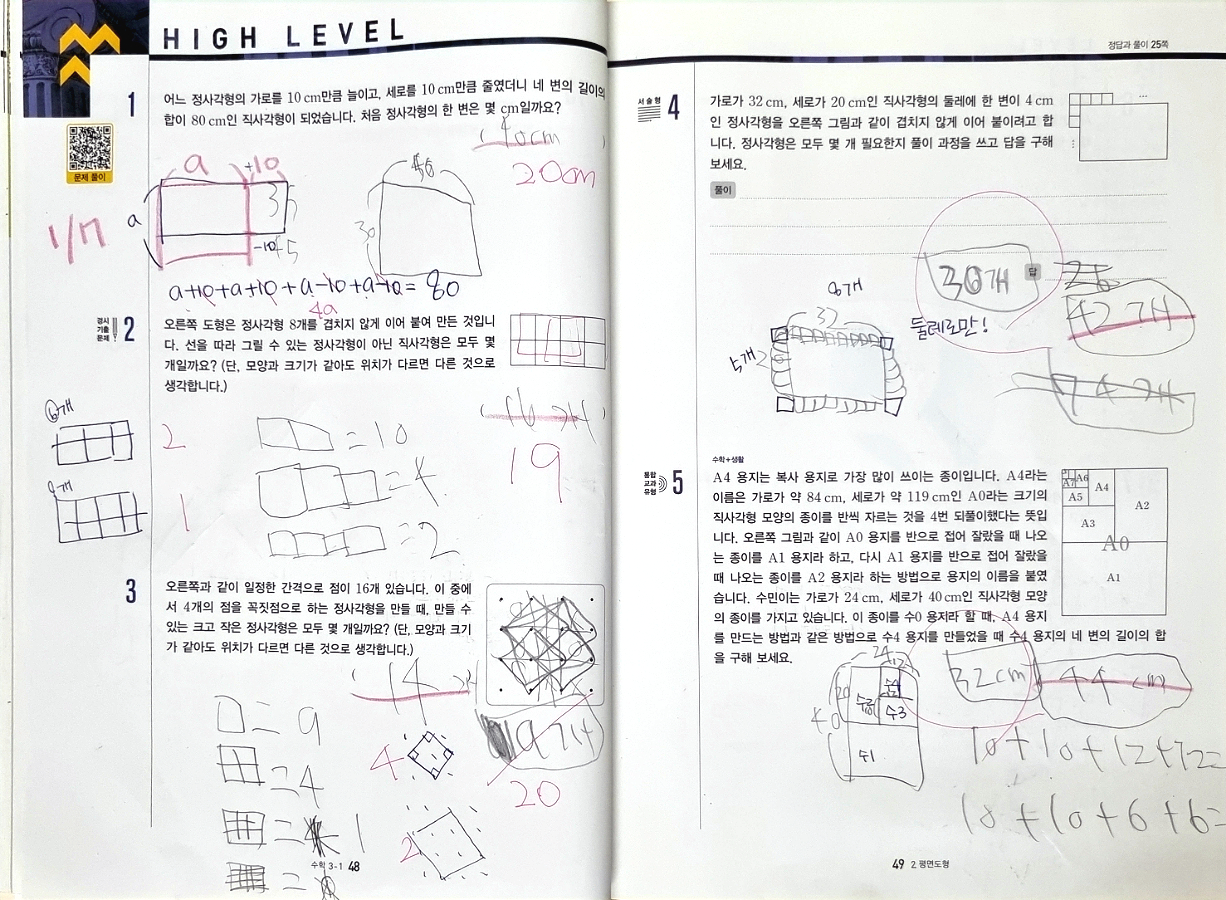 HIGH LEVEL
1
어느 정사각형의 가로를 10 cm만큼 늘이고, 세로를 10 cm만큼 줄였더니 네 변의 길이의
합이 80 cm인 직사각형이 되었습니다. 처음 정사각형의 한 변은 몇 cm일까요?
문제 풀이
40cm
20cm
a
+10
a
35
-10
45
30
a+10+a+10+a-10+a-10=80
4a
경시
기출
문제
2
오른쪽 도형은 정사각형 8개를 겹치지 않게 이어 붙여 만든 것입니
다. 선을 따라 그릴 수 있는 정사각형이 아닌 직사각형은 모두 몇
개일까요? (단, 모양과 크기가 같아도 위치가 다르면 다른 것으로
생각합니다.)
6개
2
1
=10
=4
=2
16개
19
3
오른쪽과 같이 일정한 간격으로 점이 16개 있습니다. 이 중에
서 4개의 점을 꼭짓점으로 하는 정사각형을 만들 때, 만들 수
있는 크고 작은 정사각형은 모두 몇 개일까요? (단, 모양과 크기
가 같아도 위치가 다르면 다른 것으로 생각합니다.)
14개
=9
=4
=1
4
2
20
수학 3-1 48
정답과 풀이 25쪽
서술형
4
가로가 32 cm, 세로가 20 cm인 직사각형의 둘레에 한 변이 4 cm
인 정사각형을 오른쪽 그림과 같이 겹치지 않게 이어 붙이려고 합
니다. 정사각형은 모두 몇 개 필요한지 풀이 과정을 쓰고 답을 구해
보세요.
풀이
답
30개
26
42개
둘레로만!
8개
32
5개
74개
수학+생활
통합
교과
유형
5
A4 용지는 복사 용지로 가장 많이 쓰이는 종이입니다. A4라는
이름은 가로가 약 84 cm, 세로가 약 119 cm인 A0라는 크기의
직사각형 모양의 종이를 반씩 자르는 것을 4번 되풀이했다는 뜻입
니다. 오른쪽 그림과 같이 A0 용지를 반으로 접어 잘랐을 때 나오
는 종이를 A1 용지라 하고, 다시 A1 용지를 반으로 접어 잘랐을
때 나오는 종이를 A2 용지라 하는 방법으로 용지의 이름을 붙였
습니다. 수민이는 가로가 24 cm, 세로가 40 cm인 직사각형 모양
의 종이를 가지고 있습니다. 이 종이를 수0 용지라 할 때, A4 용지
를 만드는 방법과 같은 방법으로 수4 용지를 만들었을 때 수4 용지의 네 변의 길이의 합
을 구해 보세요.
A7
A6
A5
A4
A3
A2
A0
A1
24
12
20
40
수3
수1
32cm
44cm
10+10+12+12=
10+10+6+6=
49 2 평면도형